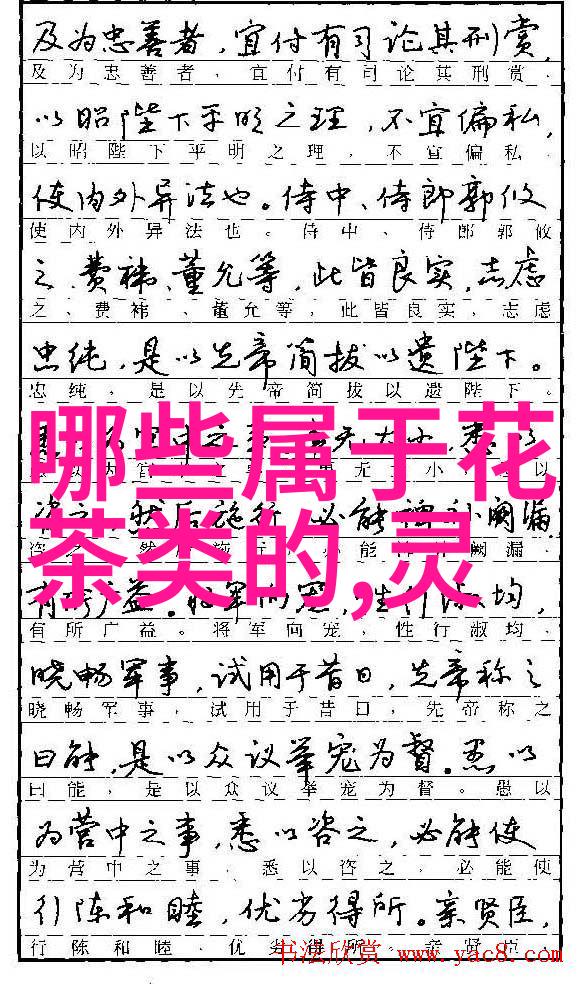 及为忠善者，宜付有司论其刑赏，
及为忠善者，宜付有司论其刑赏，
以昭陛下平明之理，不宜偏私，
以昭陛下平明之理，不宜偏私，
使内外异法也。侍中、侍郎郭攸
使内外异法也。侍中、侍郎郭攸
之、费祎、董允等，此皆良实，志虑
之、费祎、董允等，此皆良实，志虑
忠纯，是以先帝简拔以遗陛下。
忠纯，是以先帝简拔以遗陛下。
哪些属于花
茶类的,灵
有所广益。将军向宠，性行淑均，
有所广益。将军向宠，性行淑均，
晓畅军事，试用于昔日，先帝称之
晓畅军事，试用于昔日，先帝称之
曰能，是以众议举宠为督。愚以
曰能，是以众议举宠为督。愚以
为营中之事，悉以咨之，必能使
为营中之事，悉以咨之，必能使
行阵和睦，优劣得所。亲贤臣，
行阵和睦，优劣得所。亲贤臣，
书法欣赏 www.yac8.com